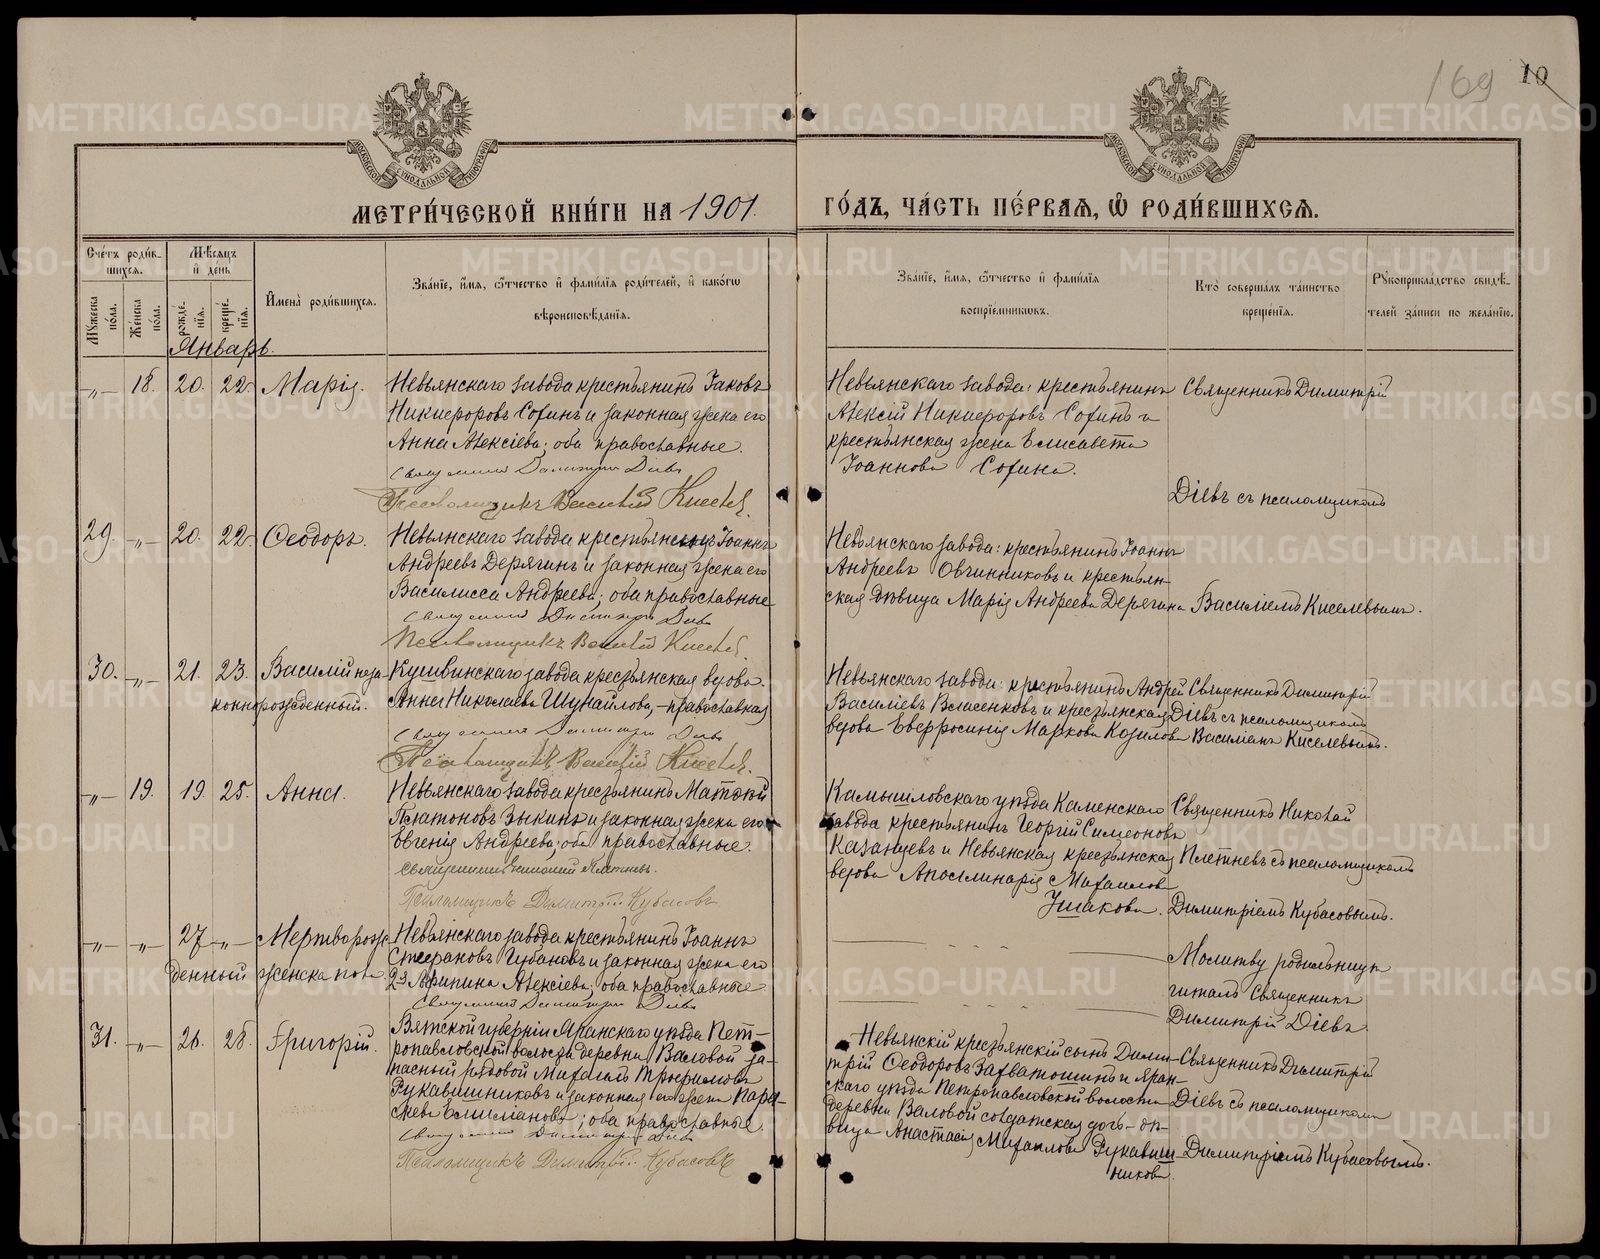 169 10
МЕТРИ́ЧЕСКОЙ КНИ́ГИ НА 1901.
ГО́ДЪ, ЧА́СТЬ ПЕ́РВАѦ, Ѡ РОДИ́ВШИХСѦ.
Сче́тъ роди́в-
шихся.
Мѣ́сяцъ
и день
Му́жеска по́ла.
Же́нска по́ла.
рожде́-
нїя.
креще́-
нїя.
И҆мена̀ роди́вшихся.
Зва́нїе, и҆́мя, ѻ҆́тчество и҆ фами́лїя роди́телей, и҆ како́гѡ
вѣроисповѣ́данїя.
Зва́нїе, и҆́мя, ѻ҆́тчество и҆ фами́лїя
воспрїе́мниковъ.
Кто̀ соверша́лъ та́инство
креще́нїя.
Рꙋкоприкла́дство свидѣ́-
телей за́писи по жела́нїю.
Январь.
-„- 18. 20. 22. Марія.
Невьянскаго завода крестьянинъ Іаковъ
Никифоровъ Софинъ и законная жена его
Анна Алексіева; оба православные.
Священникъ Димитрій Діевъ
Псаломщикъ Василій Киселев.
Невьянскаго завода: крестьянинъ
Алексій Никифоровъ Софинъ и
крестьянская жена Елисавета
Іоаннова Софина.
Священникъ Димитрій
Діевъ съ псаломщикомъ
29. -„- 20. 22. Ѳеодоръ.
Невьянскаго завода крестьянинъ Іоаннъ
Андреевъ Дерягинъ и законная жена его
Василисса Андреева; оба православные
Священникъ Димитрій Діевъ
Псаломщикъ Василій Киселев.
Невьянскаго завода: крестьянинъ Іоаннъ
Андреевъ Овчинниковъ и крестьян-
ская дѣвица Марія Андреева Дерягина
Василіемъ Киселевымъ.
30. -„- 21. 23. Василій неза-
коннорожденный.
Кушвинскаго завода крестьянская вдова
Анна Николаева Шунайлова, - православная
Священникъ Димитрій Діевъ
Псаломщикъ Василій Киселев.
Невьянскаго завода: крестьянинъ Андрей
Василіевъ Власенковъ и крестьянская
вдова Евфросинія Маркова Козилова
Священникъ Димитрій
Діевъ съ псаломщикомъ
Василіемъ Киселевымъ.
-„- 19. 19. 25. Анна.
Невьянскаго завода крестьянинъ Матѳій
Платоновъ Зыкинъ и законная жена его
Евгенія Андреева; оба православные.
Священникъ Николай Плетневъ.
Псаломщикъ Димитрій Кубасовъ
Камышловскаго уѣзда Каменскаго
завода крестьянинъ Георгій Симеоновъ
Казанцевъ и Невьянская крестьянская
вдова Аполлинарія Михаилова
Ушакова.
Священникъ Николай
Плетневъ съ псаломщикомъ
Димитріемъ Кубасовымъ.
-„- -„- 27 -„- Мертворож-
денный женска пола
Невьянскаго завода крестьянинъ Іоаннъ
Стефановъ Губановъ и законная жена его
Агрипина Алексіева; оба православные
Священникъ Димитрій Діевъ
Молитву родильницы
читалъ Священникъ
Димитрій Діевъ
31. -„- 26. 28. Григорій.
Вятской губерніи Яранскаго уѣзда Пет-
ропавловской волости деревни Валовой за-
пасный рядовой Михаилъ Трофимовъ
Рукавишниковъ и законная его жена Парас-
кева Емиліанова; оба православные
Священникъ Димитрій Діевъ
Псаломщикъ Димитрій Кубасовъ
Невьянскій крестьянскій сынъ Дими-
трій Ѳеодоровъ Захватошинъ и Яран-
скаго уѣзда Петропавловской волости
деревни Валовой солдатская дочь-дѣ-
вица Анастасія Михаилова Рукавиш-
никова.
Священникъ Димитрій
Діевъ съ псаломщикомъ
Димитріемъ Кубасовымъ.
METRIKI.GASO-URAL.RU